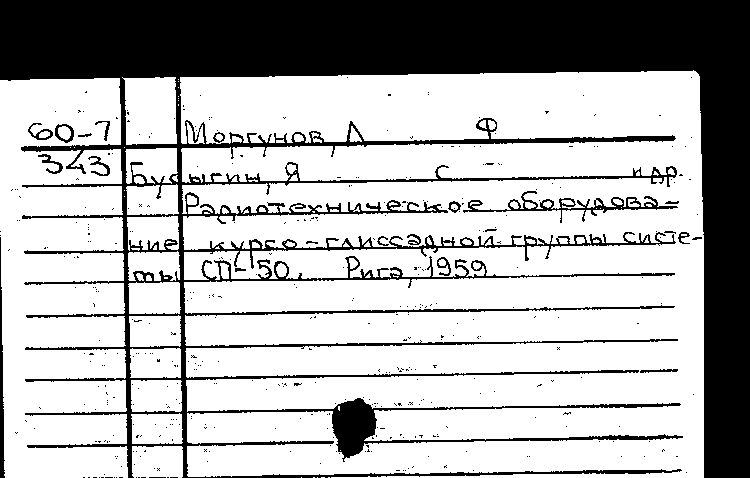 60-7 Моргунов, Л Ф
343 Бусыгин, Я С и др.
Радиотехническое оборудова-
ние курсо-глиссадной группы систе-
мы СП-50. Рига, 1959.